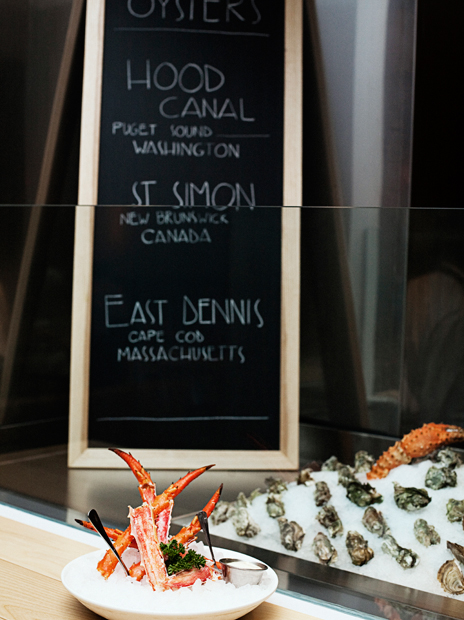 OYSTERS
HOOD
CANAL
PUGET SOUND
WASHINGTON
ST SIMON
NEW BRUNSWICK
CANADA
EAST DENNIS
CAPE COD
MASSACHUSETTS